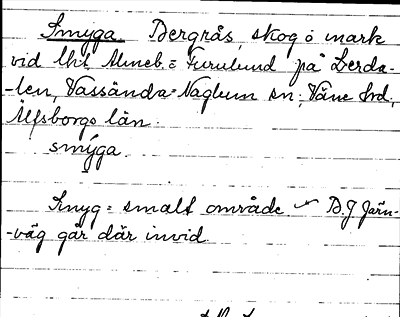 Smyga Bergrås, skog o mark
vid lht Almeb. = Furulund på Lerda-
-len, Vassända-Naglum sn; Väne hd,
Älfsborgs län.
smýga.
Smyg = smalt område B.J Järn-
-väg går där invid